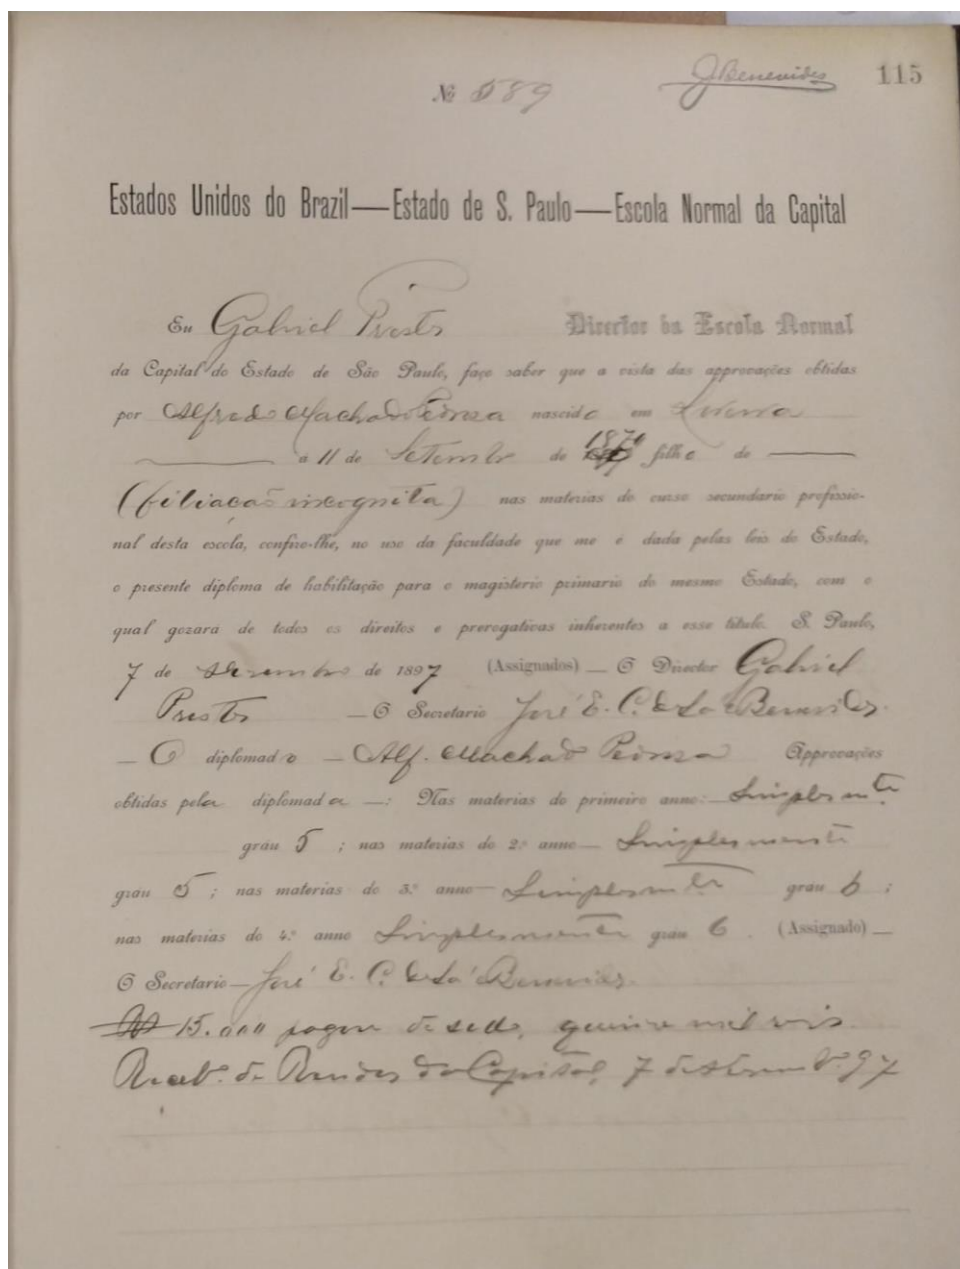 J Benevides 115
Nº 589
Estados Unidos do Brazil—Estado de S. Paulo—Escola Normal da Capital
Eu Gabriel Prestes Director da Escola Normal
da Capital do Estado de São Paulo, faço saber que a vista das approvações obtidas
por Alfredo Machado Pedrosa nascido em
a 11 de Setembro de 1870 filho de
(filiação incognita) nas materias do curso secundario profissio-
nal desta escola, confiro-lhe, no uso da faculdade que me é dada pelas leis do Estado,
o presente diploma de habilitação para o magisterio primario do mesmo Estado, com o
qual gozará de todos os direitos e prerogativas inherentes a esse titulo. S. Paulo,
7 de Dezembro de 1897 (Assignados) — O Director Gabriel
Prestes — O Secretario José E. C. de Sá e Benevides.
— O diplomado — Alf. Machado Pedrosa Approvações
obtidas pela diplomada —: Nas materias do primeiro anno: Simplesmente
gráu 5 ; nas materias do 2.º anno — Simplesmente
gráu 5 ; nas materias do 3.º anno — Simplesmente gráu 6 ;
nas materias do 4.º anno Simplesmente gráu 6 . (Assignado) —
O Secretario — José E. C. de Sá e Benevides.
15.000 pagou de sello, quinze mil reis.
Receb.ª de Rendas da Capital, 7 dezembro 97